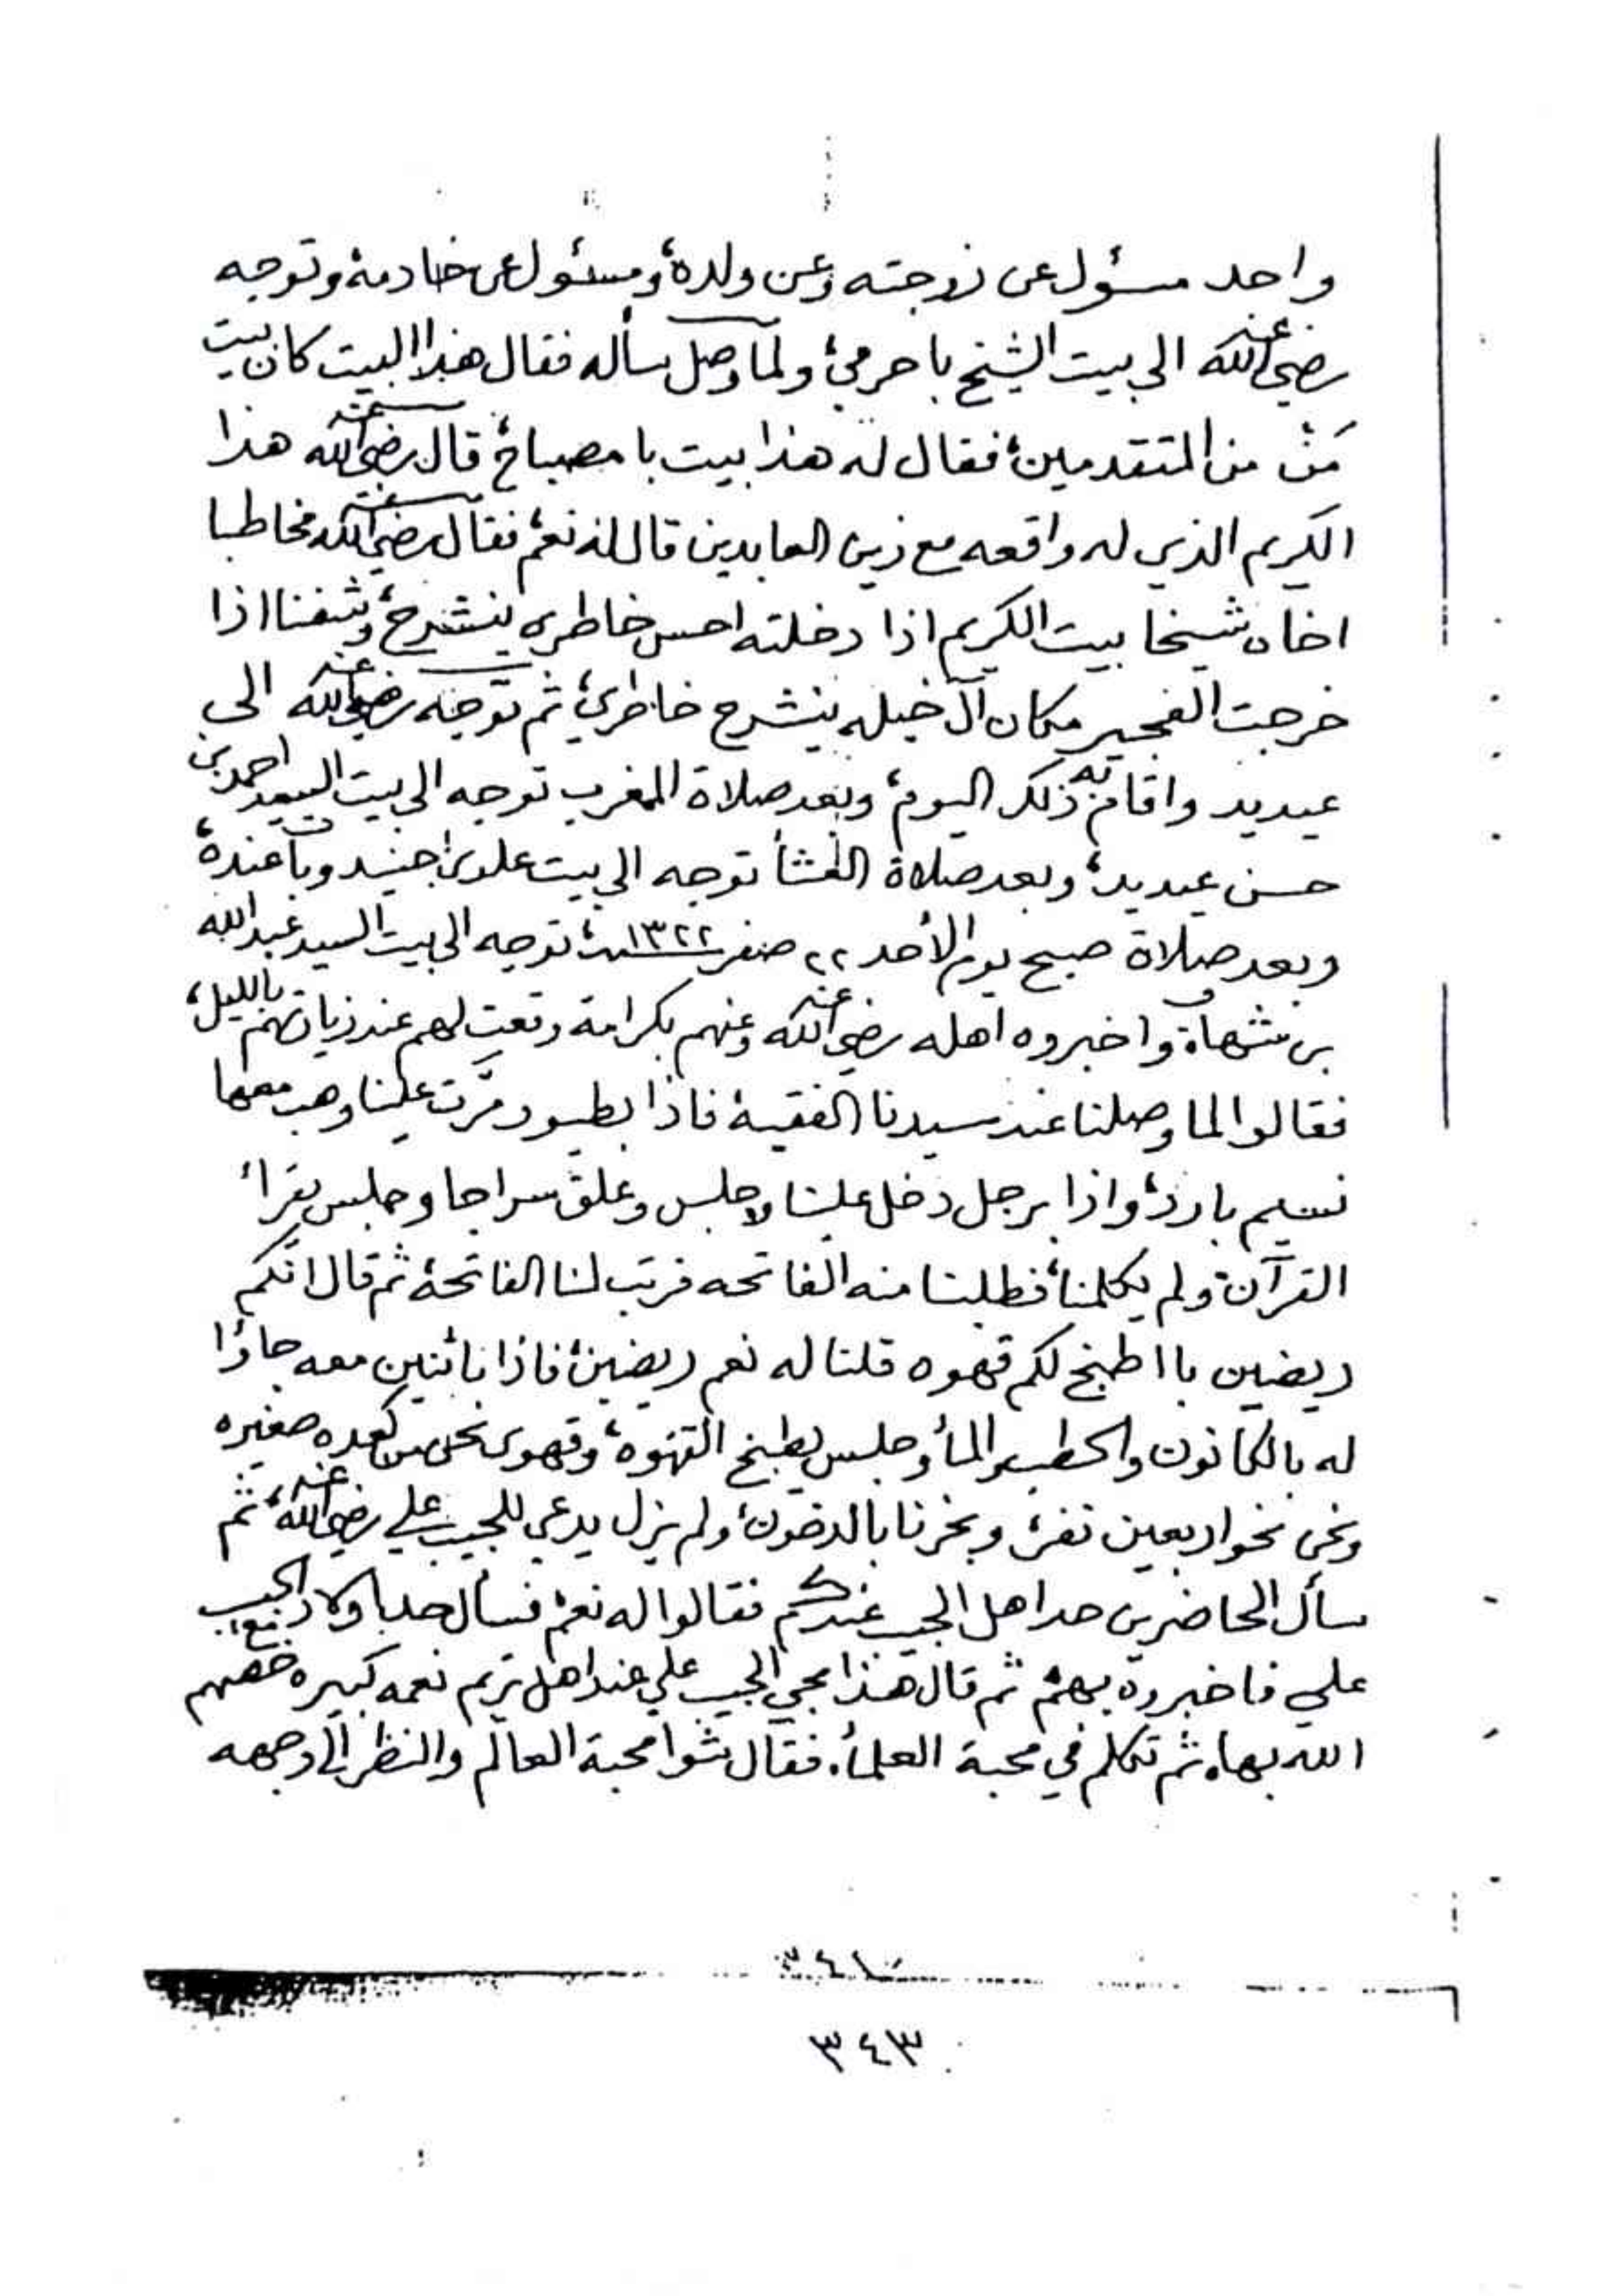 واحد مسؤل عن زوجته وعن ولده، ومسئول عن خادمه، وتوجه
رضي الله عنه الى بيت الشيخ باحرمي، ولما وصل سأله فقال هذا البيت كان بيت
مَنْ من المتقدمين، فقال له هذا بيت با مصباح، قال رضي الله عنه هذا
الكريم الذي له واقعه مع زين العابدين قال له نعم، فقال رضي الله عنه مخاطبا
اخاه شيخا بيت الكريم اذا دخلته احس خاطري ينشرح، وشفنا اذا
خرجت الفجير مكان آل خيله ينشرح خاطري، ثم توجه رضي الله عنه الى
عيديد واقام به ذلك اليوم، وبعد صلاة المغرب توجه الى بيت السيد احمد بن
حسن عيديد، وبعد صلاة العشأ توجه الى بيت علوي جنيد وبات عنده،
وبعد صلاة صبح يوم الأحد ٢٢ صفر ١٣٢٢ سنة، توجه الى بيت السيد عبدالله
بن شهاب، واخبروه اهله رضي الله عنه وعنهم بكرامة وقعت لهم عند زيارتهم بالليل،
فقالوا لما وصلنا عند سيدنا الفقيه، فاذا بطيور مرّت علينا وهب معها
نسيم بارد، واذا برجل دخل علينا وجلس وعلق سراجا وجلس يقرأ
القرآن، ولم يكلمنا، فطلبنا منه الفاتحه فرتب لنا الفاتحة، ثم قال انكم
ريضين با اطبخ لكم قهوه قلنا له نعم ريضين، فاذا باثنين معه جاؤا
له بالكانون والحطب والمأ وجلس يطبخ القهوه، وقهوى نحن من كعده صغيره
ونحن نحو اربعين نفر، وبخرنا بالدخون، ولم يزل يدعي للحبيب علي رضي الله عنه، ثم
سأل الحاضرين حد اهل الحبيب عندكم فقالوا له نعم، فسأل حد با ولاد الحبيب
علي فاخبروه بهم، ثم قال هذا مجي الحبيب علي عند اهل تريم نعمه كبيره خصهم
الله بها، ثم تكلم في محبة العلمأ، فقال شوا محبة العالم والنظر الى وجهه
٣٤١
٣٤٣